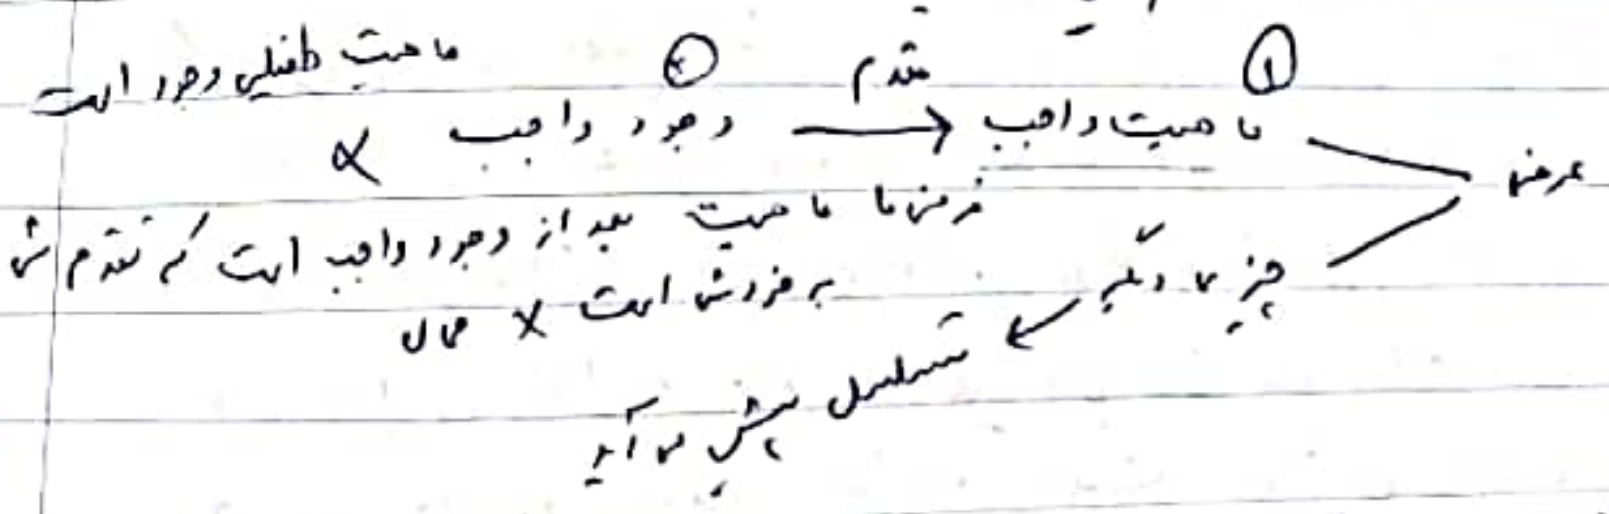 ماهیت طفیلی وجود است
① مقدم ②
عرض ماهیت واجب ← وجود واجب ×
فرض ما ماهیت بعد از وجود واجب است که تقدم ش
به خودش است × محال
چیزی دیگر ← تسلسل پیش می آید